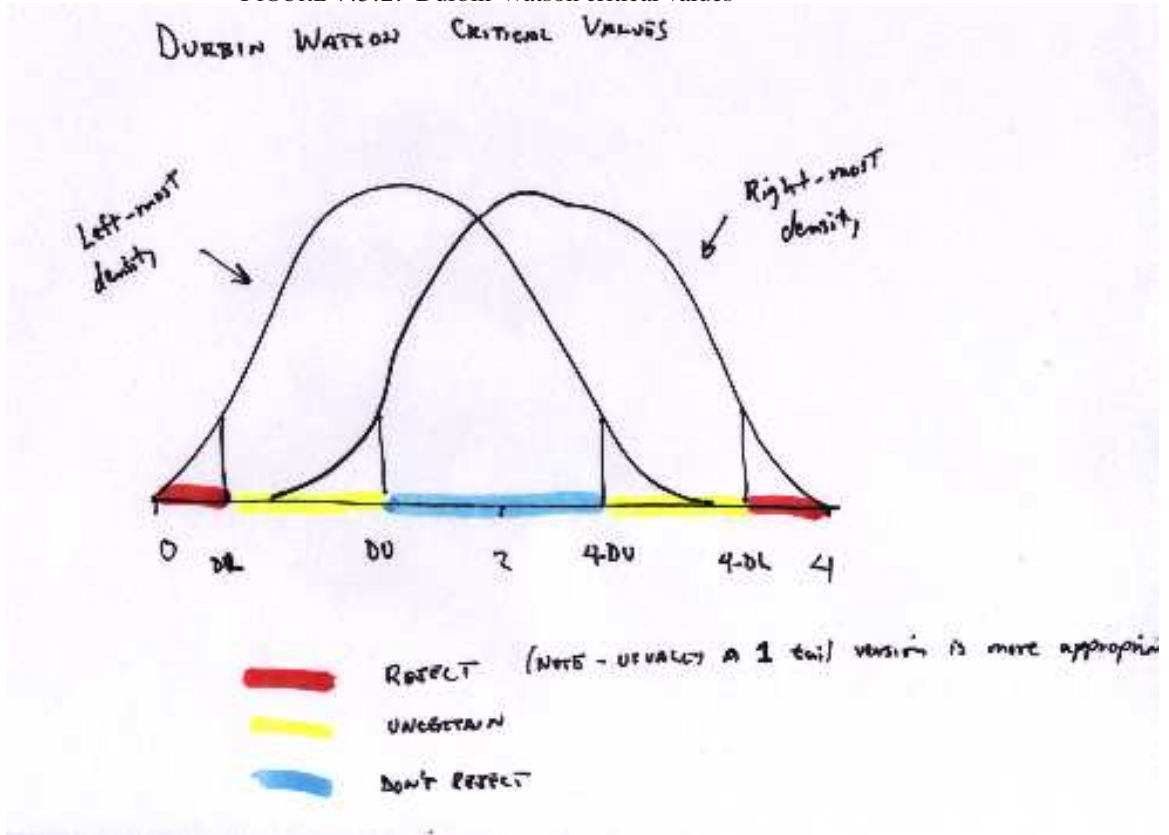 DURBIN WATSON CRITICAL VALUES
Left-most
density
Right-most
density
0 DL DU 2 4-DU 4-DL 4
REJECT (NOTE - USUALLY A 1 tail version is more
UNCERTAIN
DON'T REJECT